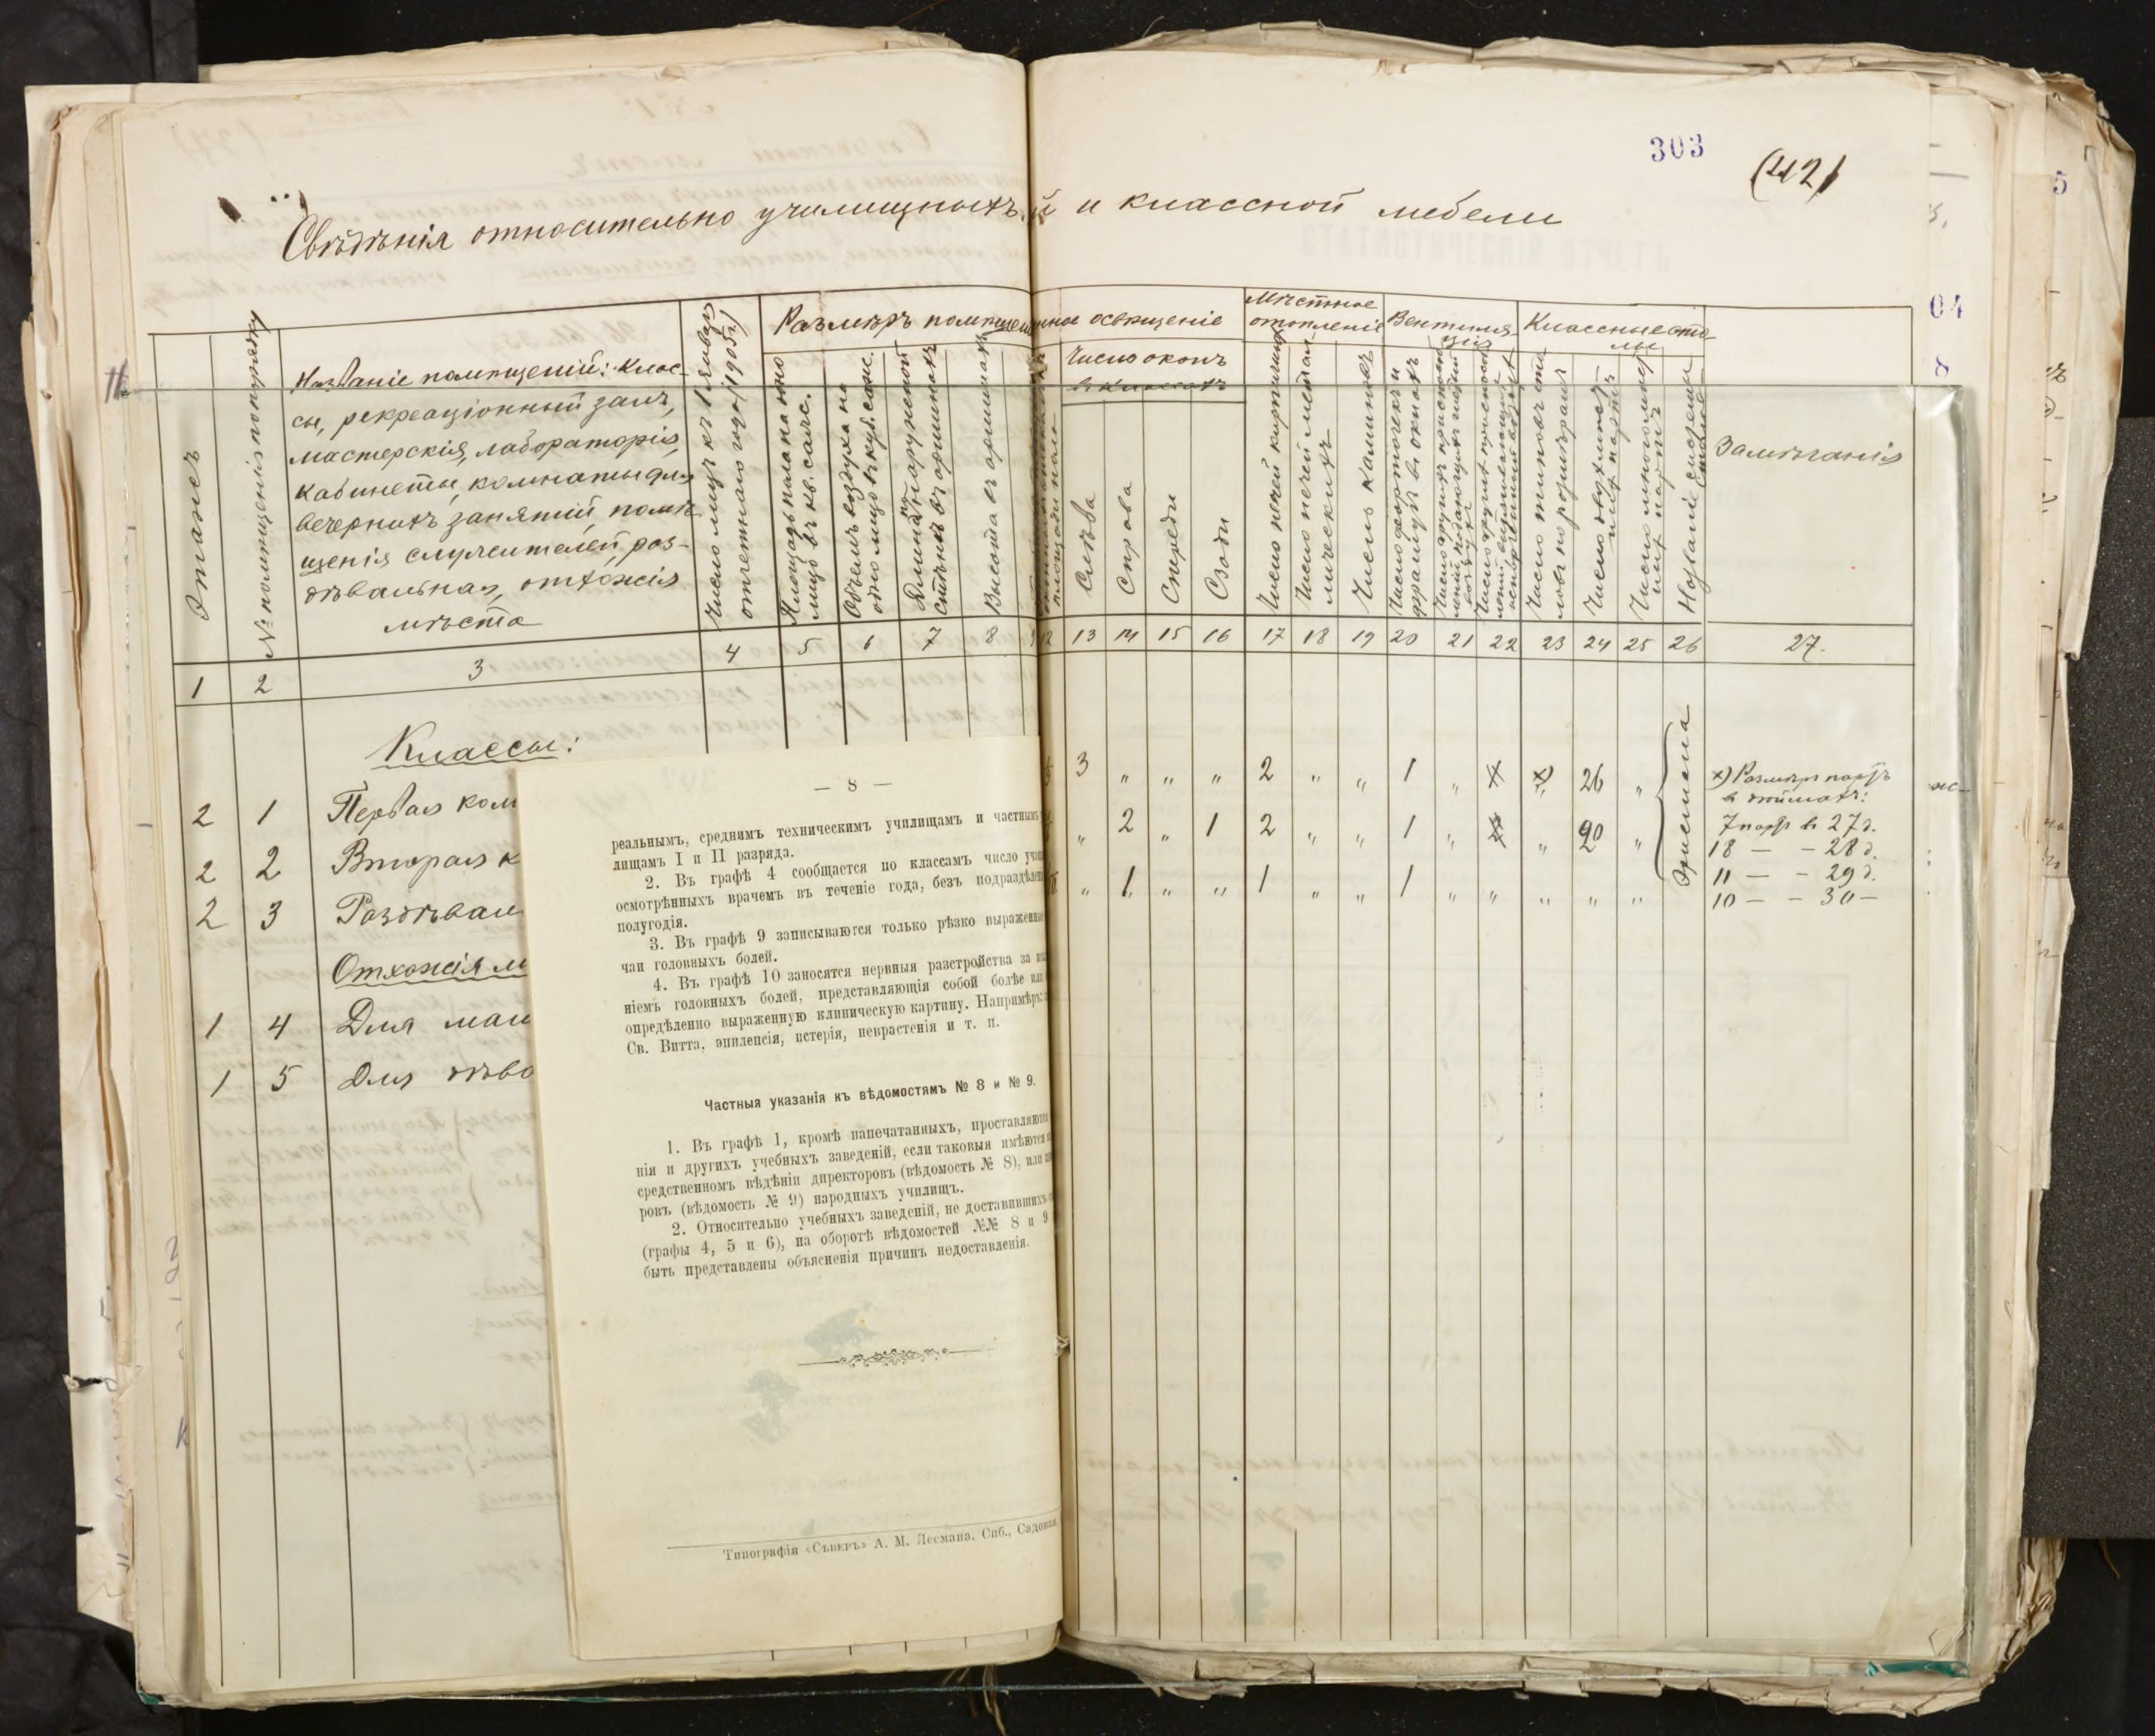 303
(42)
Свѣдѣнія относительно училищныхъ
й и классной мебели
Этажъ
№ помѣщенія по порядку
Названіе помѣщеній: клас-
сы, рекреаціонный залъ,
мастерскія, лабораторія,
кабинеты, комнаты для
вечернихъ занятій, помѣ-
щенія служителей, раз-
дѣвальная, отхожія
мѣста
Число лицъ къ 1 января
отчетнаго года (1905 г.)
Размѣръ помѣщен
Площадь пола на одно
лицо въ кв. саж.
Объемъ воздуха на
одно лицо въ куб. саж.
Длина наружной
стѣны въ аршинахъ
Высота въ аршинахъ
1 2 3 4 5 6 7 8
Классы:
2 1 Первая ком
2 2 Вторая к
2 3 Раздѣвал
Отхожія м
1 4 Для мал
1 5 Для дѣво
— 8 —
реальнымъ, среднимъ техническимъ училищамъ и частным
лищамъ I и II разряда.
2. Въ графѣ 4 сообщается по классамъ число уча
осмотрѣнныхъ врачемъ въ теченіе года, безъ подраздѣлен
полугодія.
3. Въ графѣ 9 записываются только рѣзко выраженны
чаи головныхъ болей.
4. Въ графѣ 10 заносятся нервныя разстройства за
ніемъ головныхъ болей, представляющія собой болѣе или
опредѣленно выраженную клиническую картину. Напримѣръ:
Св. Витта, эпилепсія, истерія, неврастенія и т. п.
Частныя указанія къ вѣдомостямъ № 8 и № 9.
1. Въ графѣ 1, кромѣ напечатанныхъ, проставляются
нія и другихъ учебныхъ заведеній, если таковыя имѣются
средственномъ вѣдѣніи директоровъ (вѣдомость № 8), или
ровъ (вѣдомость № 9) народныхъ училищъ.
2. Относительно учебныхъ заведеній, не доставившихъ
(графы 4, 5 и 6), на оборотѣ вѣдомостей №№ 8 и 9
быть представлены объясненія причинъ недоставленія.
Типографія «Сѣверъ» А. М. Лесмана. Спб., Садовая
нное освѣщеніе
Число оконъ
въ классахъ
Слѣва
Справа
Спереди
Сзади
Мѣстное
отопленіе
Число печей кирпичныхъ
Число печей метал
лическихъ
Число каминовъ
Вентиля
ція
Число форточекъ и
фрамугъ въ окнахъ
Классные сто
лы
Число типовъ сто
ловъ по размѣрамъ
Число двухмѣст
ныхъ партъ
Число многомѣст
ныхъ партъ
Названіе системы
Замѣчанія
12 13 14 15 16 17 18 19 20 21 22 23 24 25 26 27.
3 " " " 2 " " 1 " х х) 26 "
" 2 " 1 2 " " 1 " х " 20 "
" 1 " " 1 " " 1 " " " " "
Эрисмана
х) Размѣръ партъ
в дюймахъ:
7 партъ въ 27 д.
18 — - 28 д.
11 — - 29 д.
10 — - 30 —
04
8
5